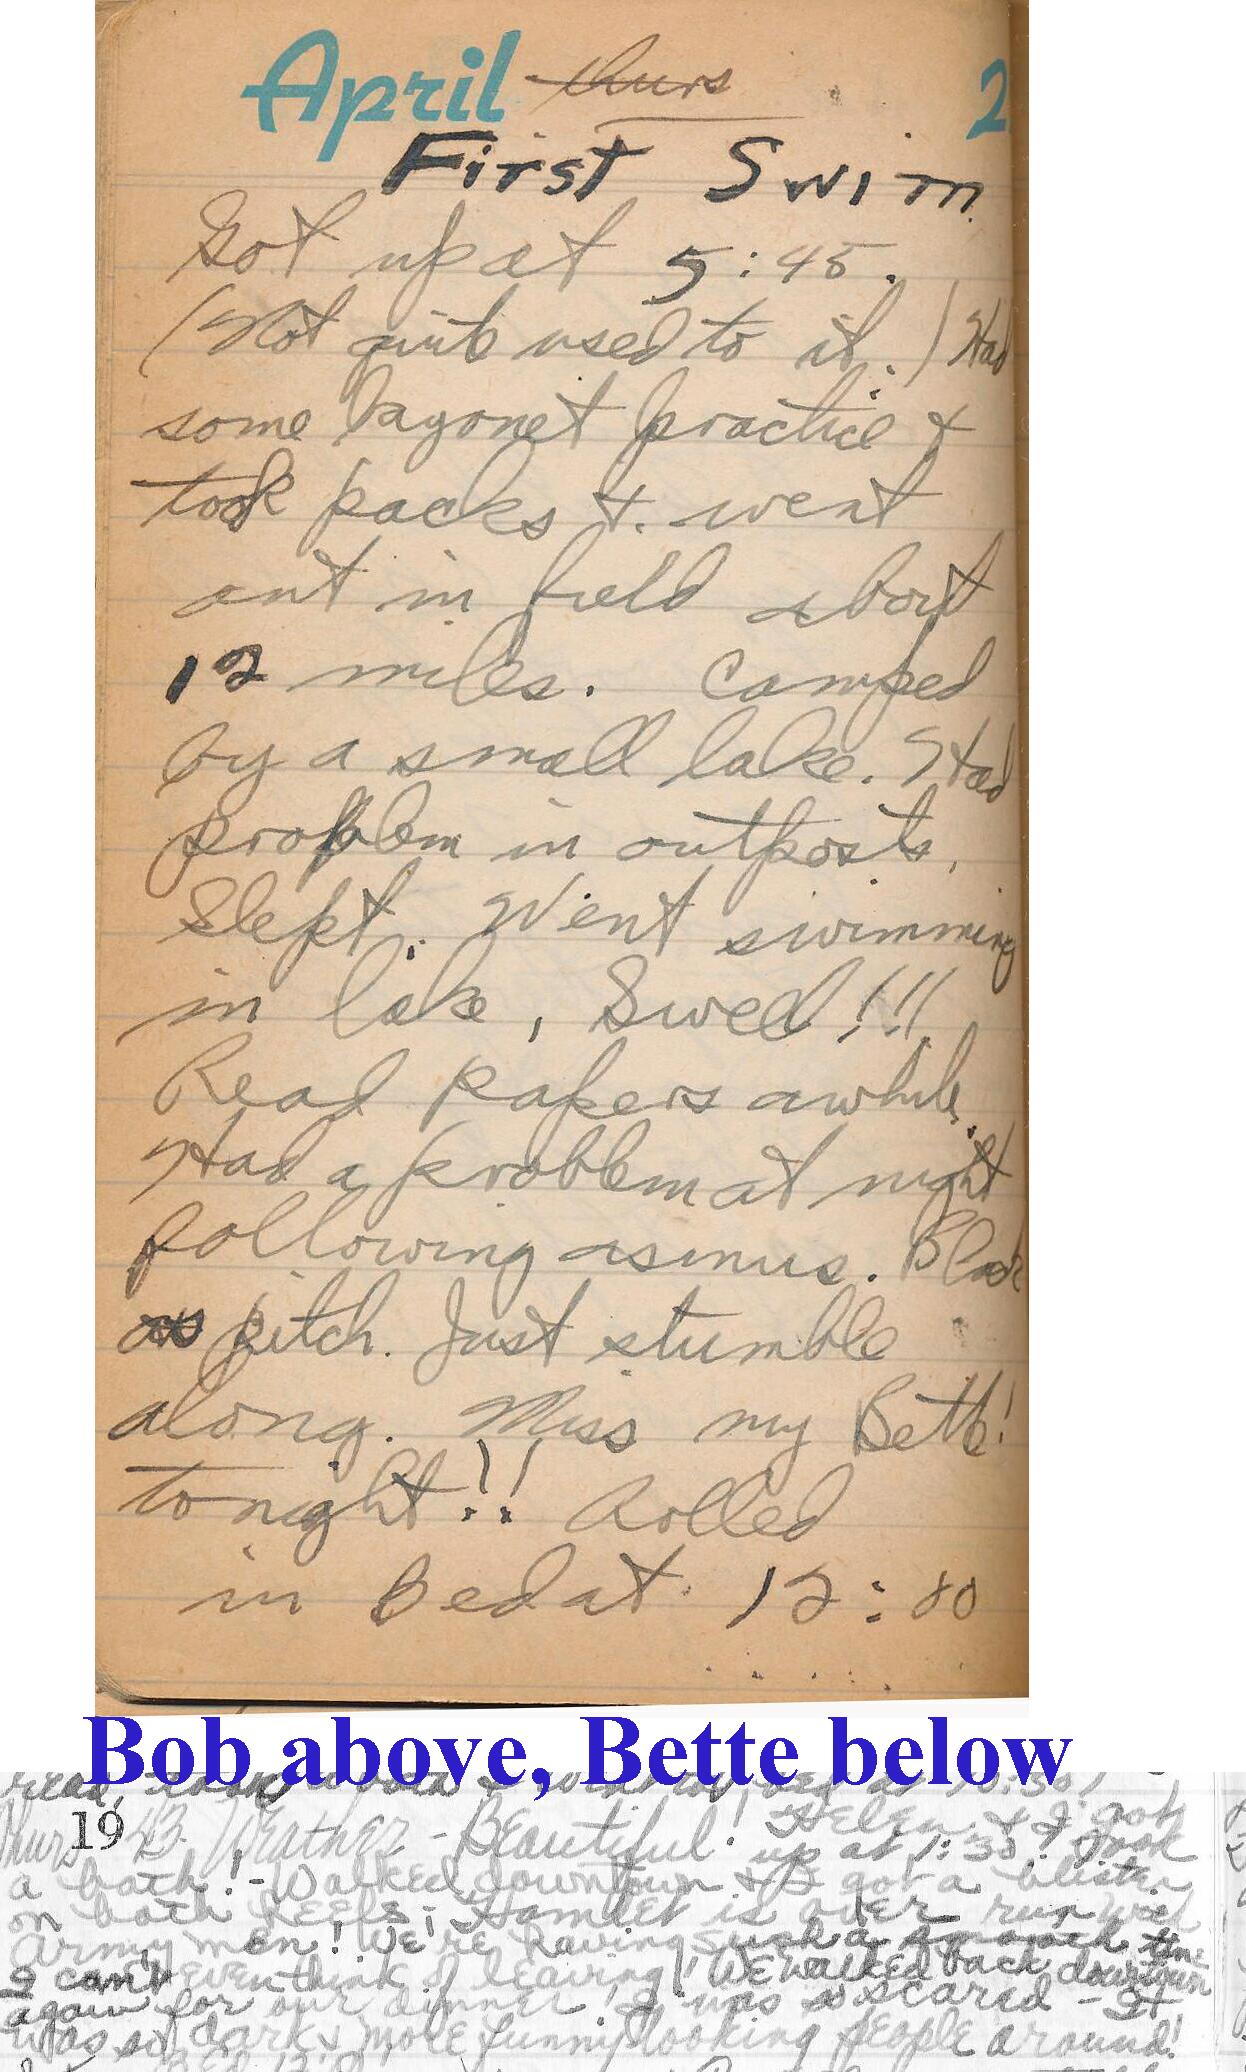 April Thurs 2
First Swim
Got up at 5:45.
(Not quite used to it.) Had
some bayonet practice &
took packs & went
out in field about
12 miles. Camped
by a small lake. Had
problem in outposts,
Slept. Went swimming
in lake, Swell!!!
Read papers awhile.
Had a problem at night
following asimus. Black
as pitch. Just stumble
along. Miss my Bette!
tonight!! Rolled
in Bed at 12:00
Bob above, Bette below
read, took & went to bed at 10:30
19
Thurs B. Weather - Beautiful! Helen & I got
up at 1:30! Took
a bath! - Walked downtown & B got a blister
on both heels - Hamlet is over run with
Army men! We're having such a smooth time
I can't even think of leaving! We walked back downtown
again for our dinner I was so scared - It
was so dark & more funny looking people around!